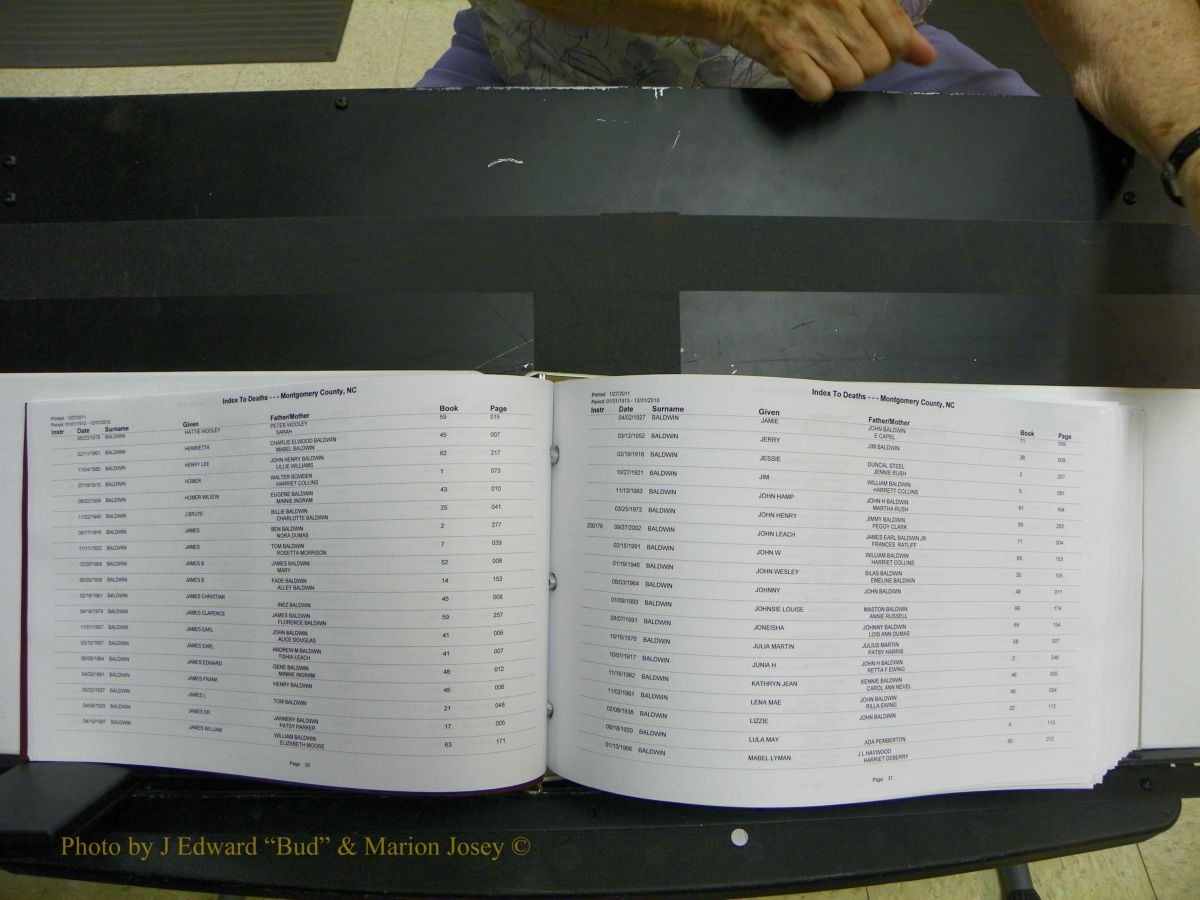 Index To Deaths - - - Montgomery County, NC
Printed: 1/27/2011
Period: 01/01/1913 - 12/31/2010
Instr Date Surname Given Father/Mother Book Page
05/23/1978 BALDWIN HATTIE WOOLEY PETER WOOLEY 59 015
SARAH
02/11/1961 BALDWIN HENRIETTA CHARLIE ELWOOD BALDWIN 45 007
MABEL BALDWIN
11/04/1985 BALDWIN HENRY LEE JOHN HENRY BALDWIN 62 217
LILLIE WILLIAMS
07/19/1915 BALDWIN HOMER WALTER BOWDEN 1 073
HARRIET COLLINS
08/02/1959 BALDWIN HOMER WILSON EUGENE BALDWIN 43 010
MINNIE INGRAM
11/22/1940 BALDWIN J BRUTE BILLIE BALDWIN 25 041
CHARLOTTE BALDWIN
09/17/1916 BALDWIN JAMES BEN BALDWIN 2 277
NORA DUMAS
11/11/1922 BALDWIN JAMES TOM BALDWIN 7 039
ROSETTA MORRISON
12/28/1968 BALDWIN JAMES B JAMES BALDWIN 52 008
MARY
05/20/1930 BALDWIN JAMES B FADE BALDWIN 14 153
ALLEY BALDWIN
02/16/1961 BALDWIN JAMES CHRISTIAN 45 008
INEZ BALDWIN
04/16/1979 BALDWIN JAMES CLARENCE JAMES BALDWIN 59 257
FLORENCE BALDWIN
11/01/1957 BALDWIN JAMES EARL JOHN BALDWIN 41 006
ALICE DOUGLAS
03/12/1957 BALDWIN JAMES EARL ANDREW M BALDWIN 41 007
TISHIA LEACH
06/06/1964 BALDWIN JAMES EDWARD GENE BALDWIN 48 012
MINNIE INGRAM
04/25/1961 BALDWIN JAMES FRANK HENRY BALDWIN 45 006
05/22/1937 BALDWIN JAMES L TOM BALDWIN 21 048
04/09/1933 BALDWIN JAMES SR JANNERY BALDWIN 17 005
PATSY PARKER
04/10/1987 BALDWIN JAMES WILLIAM WILLIAM BALDWIN 63 171
ELIZABETH MOORE
Page 30
Index To Deaths - - - Montgomery County, NC
Printed: 1/27/2011
Period: 01/01/1913 - 12/31/2010
Instr Date Surname Given Father/Mother Book Page
04/02/1927 BALDWIN JAMIE JOHN BALDWIN 11 099
E CAPEL
03/12/1952 BALDWIN JERRY JIM BALDWIN 36 009
02/19/1918 BALDWIN JESSIE DUNCAL STEEL 3 257
JENNIE RUSH
10/27/1921 BALDWIN JIM WILLIAM BALDWIN 5 081
HARRETT COLLINS
11/13/1983 BALDWIN JOHN HAMP JOHN H BALDWIN 61 164
MARTHA RUSH
03/25/1973 BALDWIN JOHN HENRY JIMMY BALDWIN 56 293
PEGGY CLARK
200178 09/27/2002 BALDWIN JOHN LEACH JAMES EARL BALDWIN JR 71 004
FRANCES RATLIFF
02/15/1991 BALDWIN JOHN W WILLIAM BALDWIN 65 153
HARRIET COLLINS
01/19/1946 BALDWIN JOHN WESLEY SILAS BALDWIN 30 105
EMELINE BALDWIN
08/03/1964 BALDWIN JOHNNY JOHN BALDWIN 48 011
01/09/1993 BALDWIN JOHNSIE LOUISE MASTON BALDWIN 66 174
ANNIE RUSSELL
08/07/1991 BALDWIN JONEISHA JOHNNY BALDWIN 65 154
LOIS ANN DUMAS
10/16/1976 BALDWIN JULIA MARTIN JULIUS MARTIN 58 007
PATSY HARRIS
10/01/1917 BALDWIN JUNIA H JOHN H BALDWIN 2 248
RETTA F EWING
11/16/1962 BALDWIN KATHRYN JEAN KENNIE BALDWIN 46 005
CAROL ANN NEVEL
11/02/1961 BALDWIN LENA MAE JOHN BALDWIN 45 004
RILLA EWING
02/08/1938 BALDWIN LIZZIE JOHN BALDWIN 22 112
08/18/1920 BALDWIN LULA MAY 4 113
ADA PEMBERTON
01/13/1966 BALDWIN MABEL LYMAN J L HAYWOOD 50 012
HARRIET DEBERRY
Page 31
Photo by J Edward “Bud” & Marion Josey ©